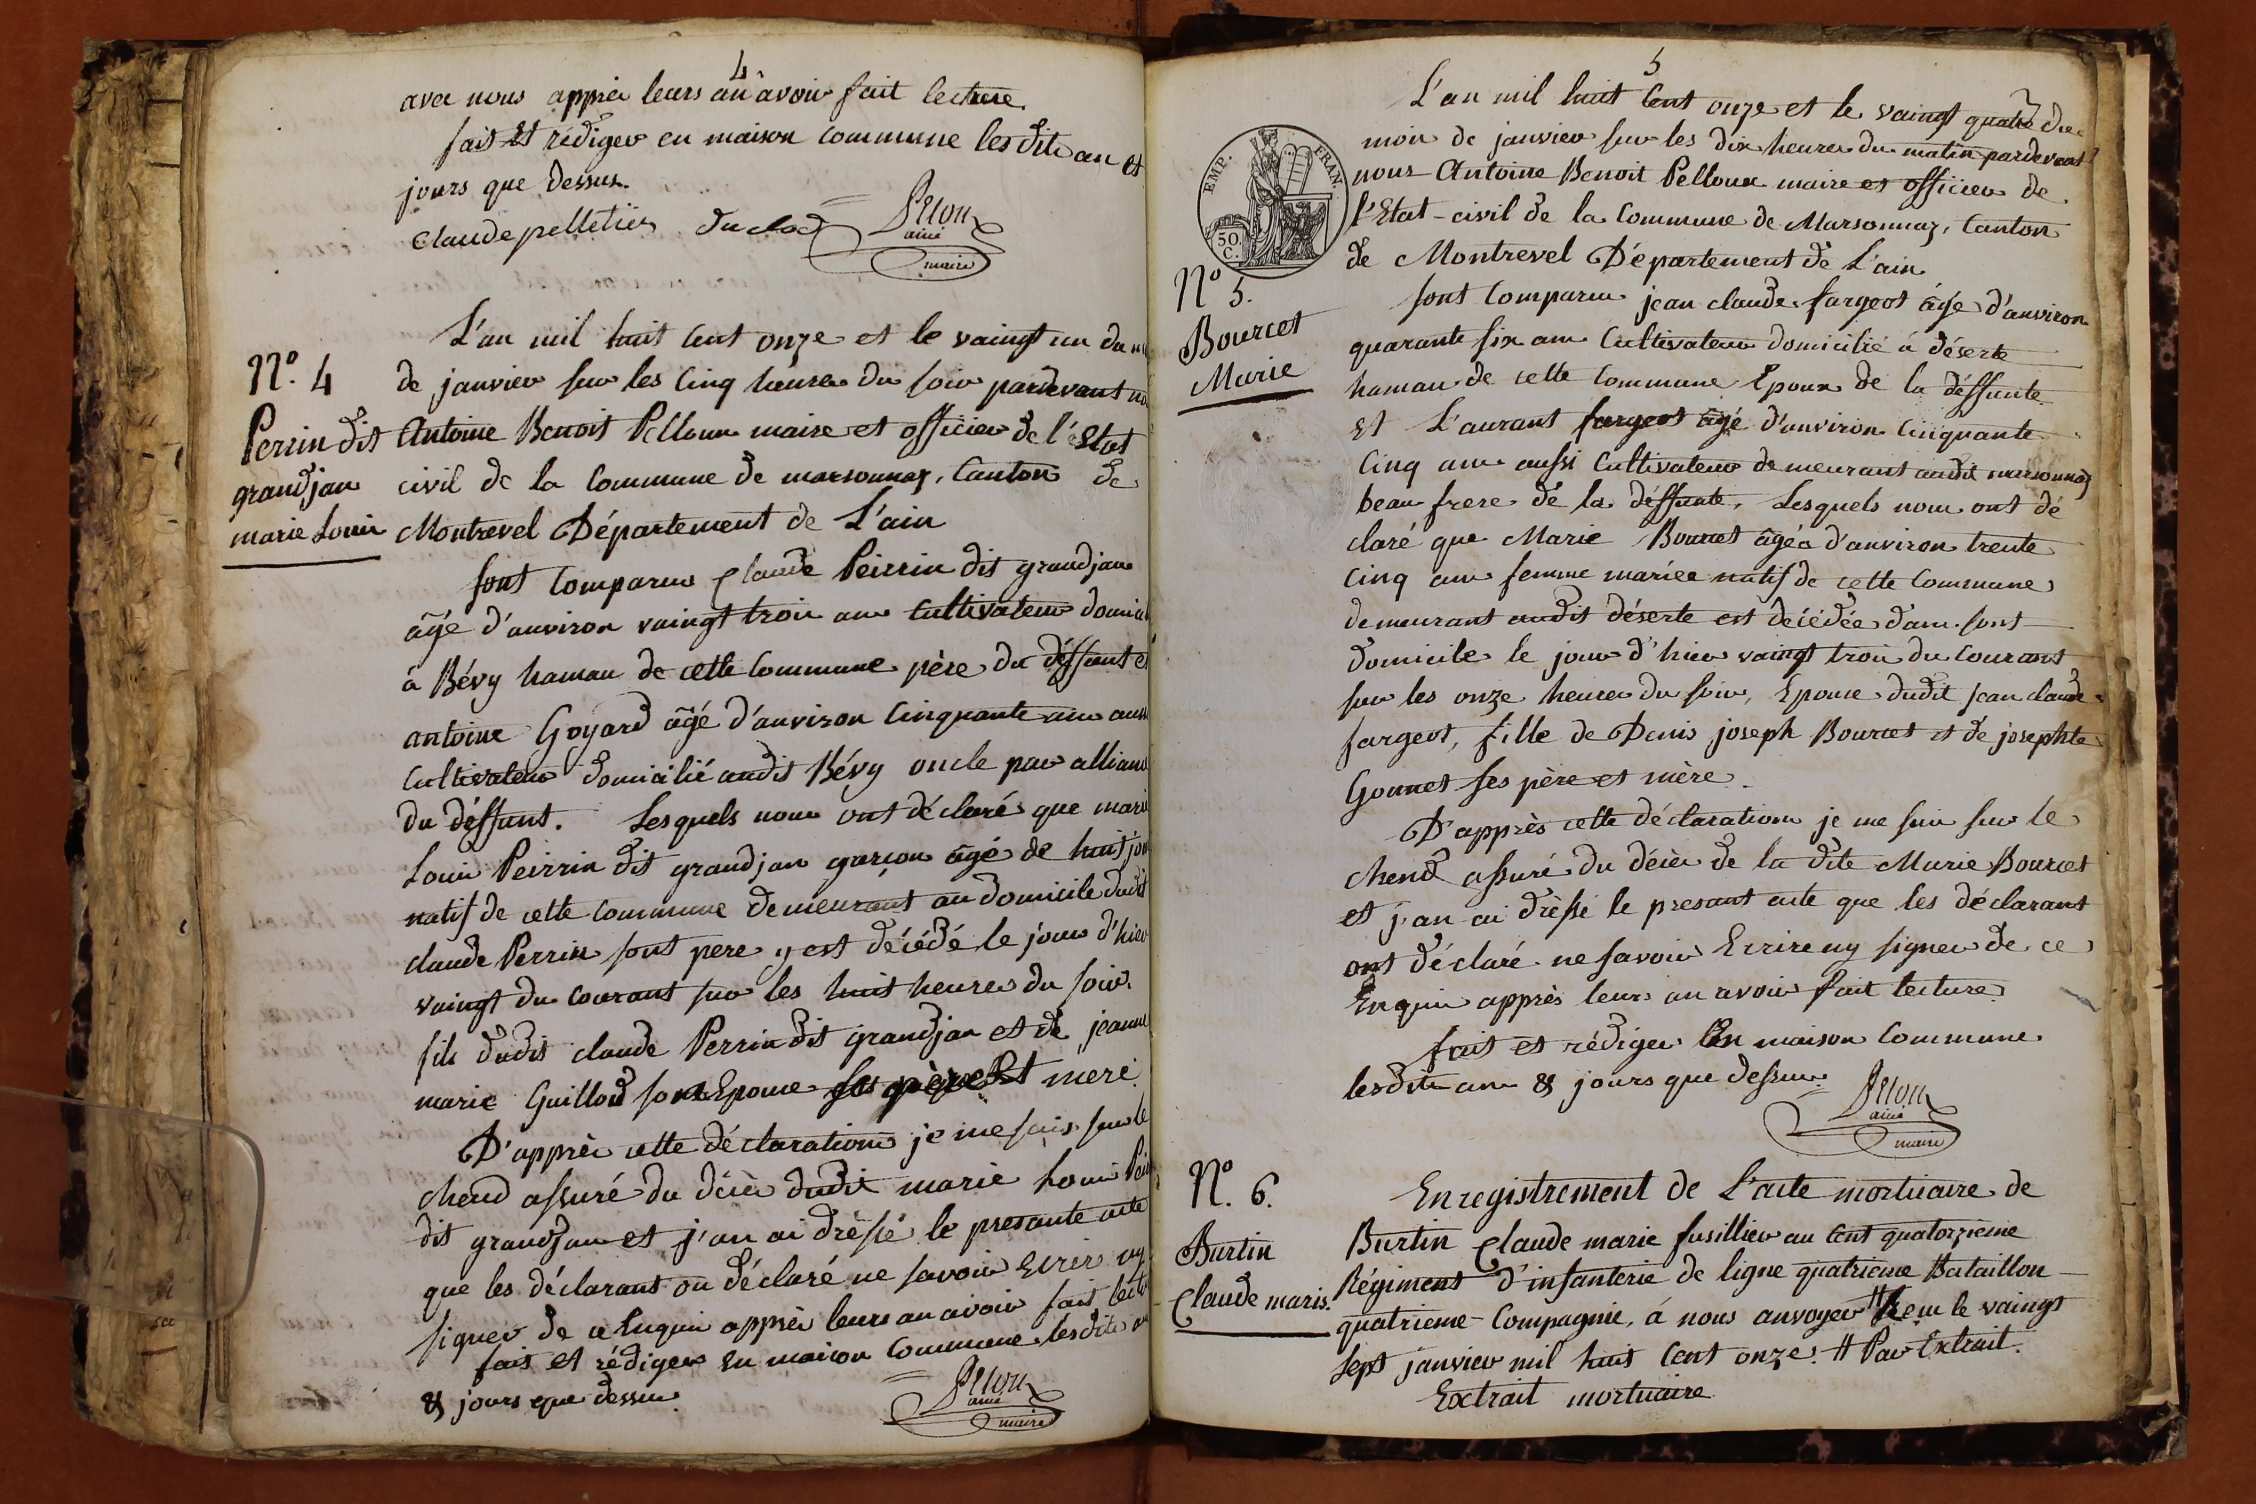 4
avec nous apprès leurs an avoir fait lecture.
fait et rédiger en maison commune les dits an et
jours que dessus.
Claude pelletier duclod Pelou
ainé
maire
L'an mil huit cent onze et le vaingt un du
N.° 4
de janvier sur les cinq heures du soir pardevant
Perrin dit
Antoine Benoit Pelloux maire et officier de l'Etat
grandjan
civil de la Commune de marsonnaz, Canton de
marie Louis
Montrevel Département de L'ain
sont Comparus Claude Peirrin dit grandjan
âgé d'anviron vaingt trois ans Cultivateur
à Bévy hamau de cette Commune père du déffunt et
antoine Goyard âgé d'anviron Cinquante ans
Cultivateur domicilié audit Bévy oncle par
du déffunt. Lesquels nous ont déclaré que
Louis Peirrin dit grandjan garçon âgé de huit
natif de cette Commune demeurant au domicile dudit
claude Perrin sont pere y est décédé le jour d'hier
vaingt du courant sur les huit heures du soir.
fils dudit claude Perrin dit grandjan et de jeanne
marie Guillod son Epouse ses père Et mere.
D'apprès cette déclaration je me suis sur le
chend assuré du décès dudit marie Louis
dit grandjan et j'an ai drèssé le presante acte
que les déclarant on déclaré ne savoir Ecrir ny
signer de ce Enquis apprès leurs an avoir fait
fait et rédiger en maison Commune lesdits
& jours que dessus.
Pelou
ainé
maire
5
L'an mil huit Cent onze et le vaingt quatre du
mois de janvier sur les dix heures du matin pardevant
EMP. FRAN.
50 C.
nous Antoine Benoit Pelloux maire et officier de
l'Etat-civil de la Commune de Marsonnaz, Canton
de Montrevel Département de L'ain
N° 5.
sont Comparus jean claude fargeot âgé d'anviron
Bourcet
quarante six ans Cultivateur domicilié à déserte
Marie
hamau de cette Commune Epoux de la déffunte
Et L'aurant fargeot âgé d'anviron Cinquante
Cinq ans aussi Cultivateur demeurant audit marsonnaz
beau frere de la déffunte, Lesquels nous ont dé
claré que Marie Bourcet âgéa d'anviron trente
Cinq ans femme mariée natif de cette Commune
demeurant audit déserte est décédée dans sont
domicile le jour d'hier vaingt trois du Courant
sur les onze heures du soir, Epouse dudit jean claude
fargeot, fille de Denis joseph Bourcet et de josephte
Gonnet ses père et mère.
D'apprès cette déclaration je me suis sur le
chend assuré du décès de la dite Marie Bourcet
et j'an ai drèssé le presant acte que les déclarant
ont déclaré ne savoir Ecrire ny signer de ce
Enquis apprès leurs an avoir fait lecture.
fait et rédiger En maison Commune
lesdits ans & jours que dessus.
Pelou
ainé
maire
N.° 6.
Enregistrement de L'acte mortuaire de
Burtin
Burtin Claude marie fusillier au Cent quatorzieme
Régiment d'infanterie de ligne quatrieme Bataillon
Claude marie.
quatrieme Compagnie, à nous anvoyer # Reçu le vaingt
sept janvier mil huit Cent onze. # Par Extrait.
Extrait mortuaire